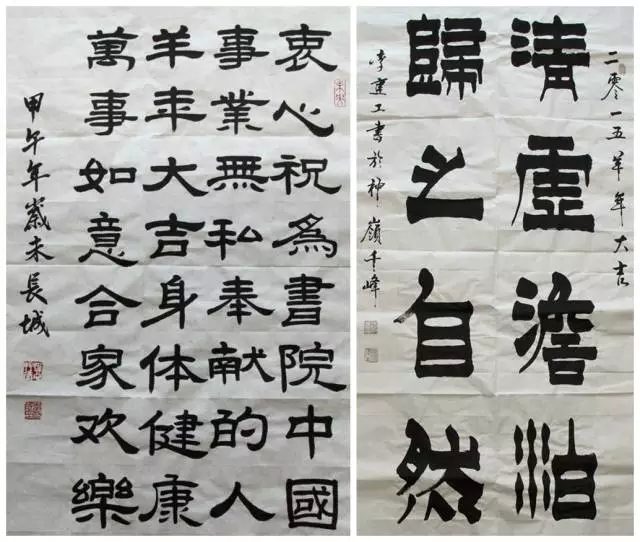 衷心祝為書院中國
事業無私奉献的人
羊年大吉身体健康
萬事如意合家欢樂
甲午年歲末長城
二零一五羊年大吉
清虛澹泊
歸之自然
李建工書於神嶺千峰